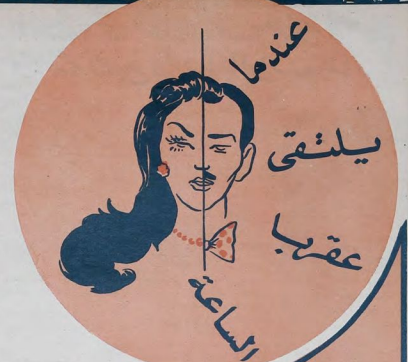 عندما
يلتقى
عقربا
الساعة